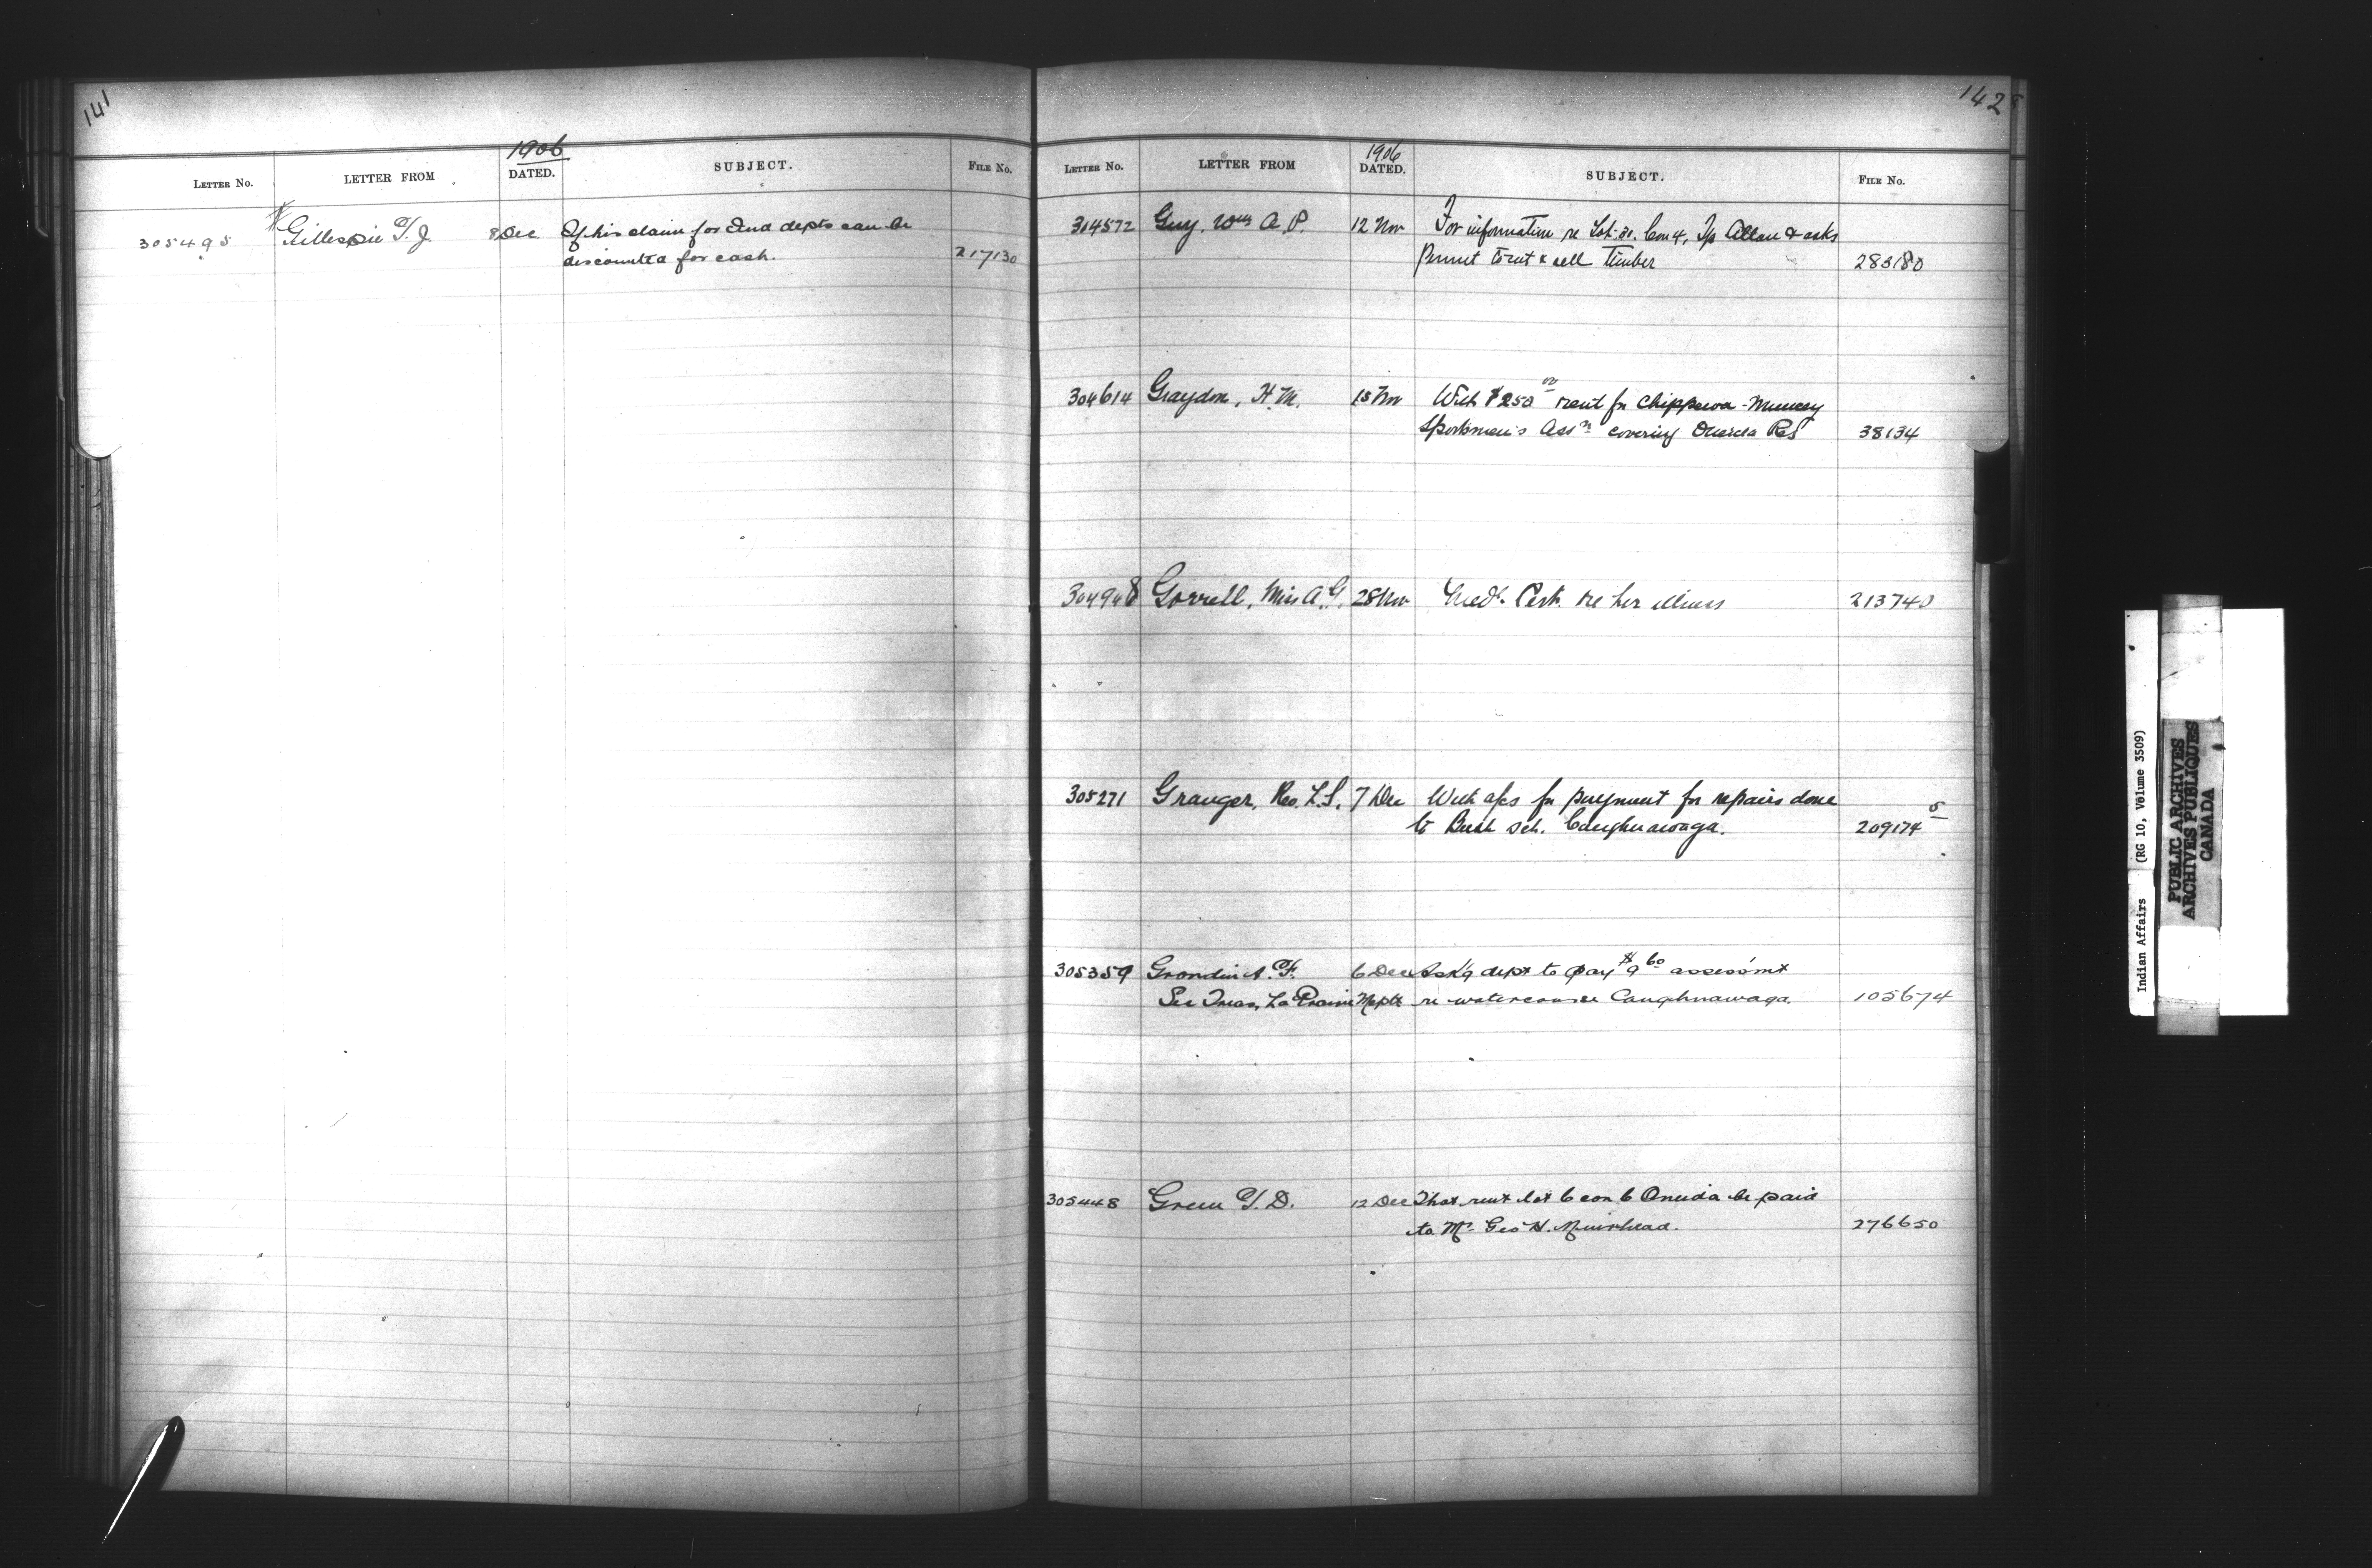 141
1906
LETTER No. LETTER FROM DATED. SUBJECT. FILE No.
305495 Gillespie T. J. 8 Dec If his claim for Ind depts can be
discounted for cash. 217130
142
1906
LETTER No. LETTER FROM DATED. SUBJECT. FILE No.
314572 Guy, Wm A. P. 12 Nov For information re Lot 31. Con 4, Tp Allan & asks
Permit to cut & sell Timber 283180
304614 Graydon, H. M. 15 Nov With $250 00 rent for Chippewa-Muncey
Sportsmen's Assn covering Oneida Res 38134
304948 Gorrell, Miss A. G. 28 Nov Med. Cert. re her illness 213740
305271 Granger, Rev. L. S. 7 Dec With a/cs for payment for repairs done
to Bush sch. Caughnawaga. 209174 5
305359 Grondin A. F. 6 Dec Ask'g dept to pay $9 60 assessmt
Sec Treas, La Prairie Mcplt re watercourse Caughnawaga. 105674
305448 Green T. D. 12 Dec That rent lot 6 con 6 Oneida be paid
to Mr. Geo H. Muirhead. 276650
Indian Affairs (RG 10, Volume 3509)
PUBLIC ARCHIVES
ARCHIVES PUBLIQUES
CANADA